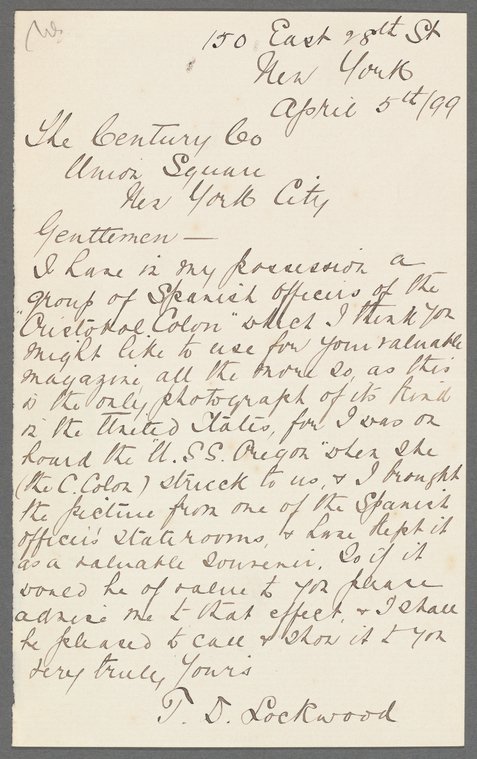 150 East 28th St
New York
April 5th/99
The Century Co
Union Square
New York City
Gentlemen —
I have in my possession a
group of Spanish officers of the
"Cristobal Colon" which I think you
might like to use for your valuable
magazine, all the more so, as this
is the only photograph of its kind
in the United States, for I was on
board the "U.S.S. Oregon" when she
(the C. Colon) struck to us, & I brought
the picture from one of the Spanish
officers' staterooms, & have kept it
as a valuable souvenir. So if it
would be of value to you please
advise me to that effect, & I shall
be pleased to call & show it to you
Very truly yours
T. D. Lockwood